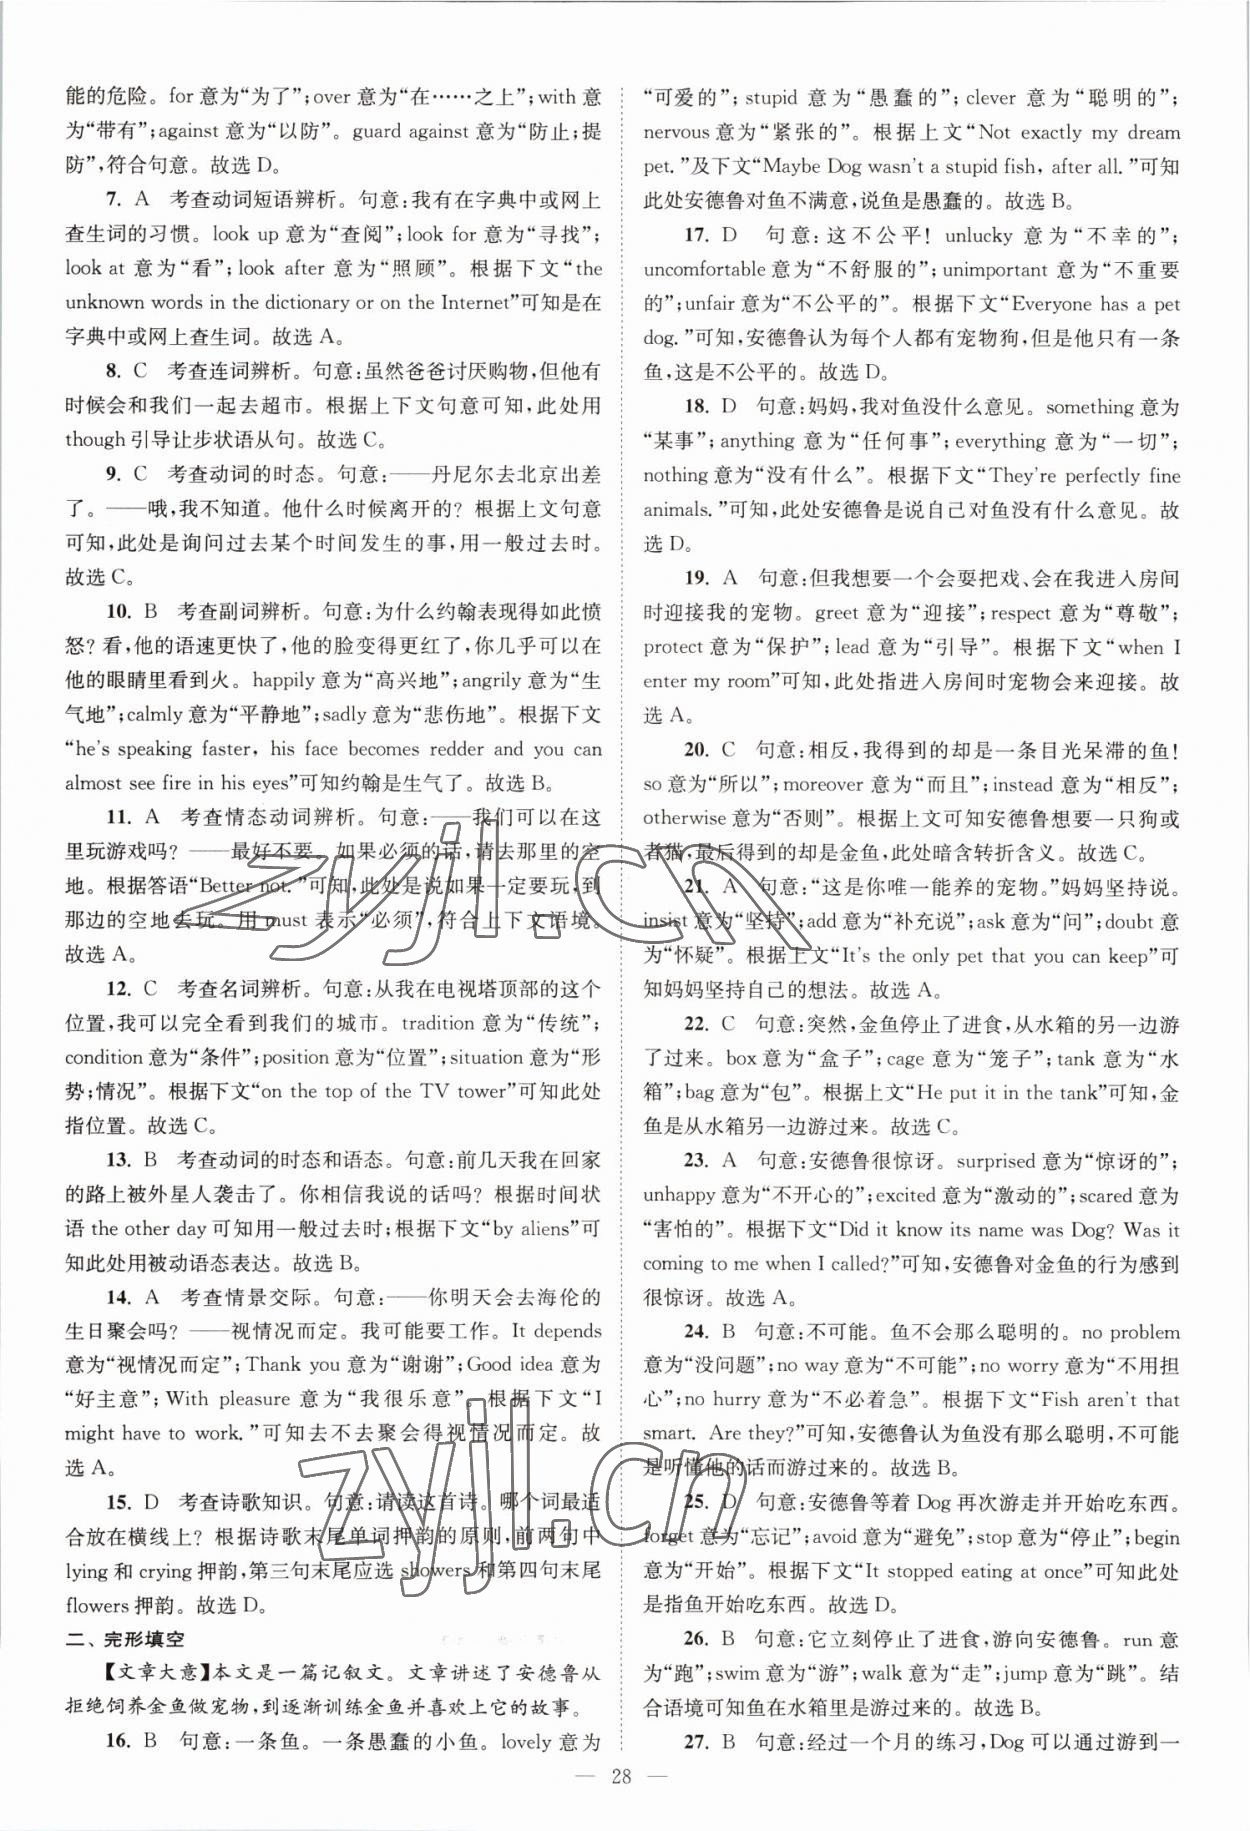 能的危险。for 意为“为了”;over 意为“在……之上”;with 意
为“带有”;against 意为“以防”。guard against 意为“防止;提
防”,符合句意。故选 D。
7. A 考查动词短语辨析。句意:我有在字典中或网上
查生词的习惯。look up 意为“查阅”;look for 意为“寻找”;
look at 意为“看”;look after 意为“照顾”。根据下文“the
unknown words in the dictionary or on the Internet”可知是在
字典中或网上查生词。故选 A。
8. C 考查连词辨析。句意:虽然爸爸讨厌购物,但他有
时候会和我们一起去超市。根据上下文句意可知,此处用
though 引导让步状语从句。故选 C。
9. C 考查动词的时态。句意:——丹尼尔去北京出差
了。——哦,我不知道。他什么时候离开的?根据上文句意
可知,此处是询问过去某个时间发生的事,用一般过去时。
故选 C。
10. B 考查副词辨析。句意:为什么约翰表现得如此愤
怒?看,他的语速更快了,他的脸变得更红了,你几乎可以在
他的眼睛里看到火。happily 意为“高兴地”;angrily 意为“生
气地”;calmly 意为“平静地”;sadly 意为“悲伤地”。根据下文
“he's speaking faster, his face becomes redder and you can
almost see fire in his eyes”可知约翰是生气了。故选 B。
11. A 考查情态动词辨析。句意:——我们可以在这
里玩游戏吗?——最好不要。如果必须的话,请去那里的空
地。根据答语“Better not.”可知,此处是说如果一定要玩,到
那边的空地去玩。用 must 表示“必须”,符合上下文语境。
故选 A。
12. C 考查名词辨析。句意:从我在电视塔顶部的这个
位置,我可以完全看到我们的城市。tradition 意为“传统”;
condition 意为“条件”;position 意为“位置”;situation 意为“形
势;情况”。根据下文“on the top of the TV tower”可知此处
指位置。故选 C。
13. B 考查动词的时态和语态。句意:前几天我在回家
的路上被外星人袭击了。你相信我说的话吗?根据时间状
语 the other day 可知用一般过去时;根据下文“by aliens”可
知此处用被动语态表达。故选 B。
14. A 考查情景交际。句意:——你明天会去海伦的
生日聚会吗?——视情况而定。我可能要工作。It depends
意为“视情况而定”;Thank you 意为“谢谢”;Good idea 意为
“好主意”;With pleasure 意为“我很乐意”。根据下文“I
might have to work.”可知去不去聚会得视情况而定。故
选 A。
15. D 考查诗歌知识。句意:请读这首诗。哪个词最适
合放在横线上?根据诗歌末尾单词押韵的原则,前两句中
lying 和 crying 押韵,第三句末尾应选 showers 和第四句末尾
flowers 押韵。故选 D。
二、完形填空
【文章大意】本文是一篇记叙文。文章讲述了安德鲁从
拒绝饲养金鱼做宠物,到逐渐训练金鱼并喜欢上它的故事。
16. B 句意:一条鱼。一条愚蠢的小鱼。lovely 意为
“可爱的”;stupid 意为“愚蠢的”;clever 意为“聪明的”;
nervous 意为“紧张的”。根据上文“Not exactly my dream
pet.”及下文“Maybe Dog wasn't a stupid fish, after all.”可知
此处安德鲁对鱼不满意,说鱼是愚蠢的。故选 B。
17. D 句意:这不公平!unlucky 意为“不幸的”;
uncomfortable 意为“不舒服的”;unimportant 意为“不重要
的”;unfair 意为“不公平的”。根据下文“Everyone has a pet
dog.”可知,安德鲁认为每个人都有宠物狗,但是他只有一条
鱼,这是不公平的。故选 D。
18. D 句意:妈妈,我对鱼没什么意见。something 意为
“某事”;anything 意为“任何事”;everything 意为“一切”;
nothing 意为“没有什么”。根据下文“They're perfectly fine
animals.”可知,此处安德鲁是说自己对鱼没有什么意见。故
选 D。
19. A 句意:但我想要一个会耍把戏、会在我进入房间
时迎接我的宠物。greet 意为“迎接”;respect 意为“尊敬”;
protect 意为“保护”;lead 意为“引导”。根据下文“when I
enter my room”可知,此处指进入房间时宠物会来迎接。故
选 A。
20. C 句意:相反,我得到的却是一条目光呆滞的鱼!
so 意为“所以”;moreover 意为“而且”;instead 意为“相反”;
otherwise 意为“否则”。根据上文可知安德鲁想要一只狗或
者猫,最后得到的却是金鱼,此处暗含转折含义。故选 C。
21. A 句意:“这是你唯一能养的宠物。”妈妈坚持说。
insist 意为“坚持”;add 意为“补充说”;ask 意为“问”;doubt 意
为“怀疑”。根据上文“It's the only pet that you can keep”可
知妈妈坚持自己的想法。故选 A。
22. C 句意:突然,金鱼停止了进食,从水箱的另一边游
了过来。box 意为“盒子”;cage 意为“笼子”;tank 意为“水
箱”;bag 意为“包”。根据上文“He put it in the tank”可知,金
鱼是从水箱另一边游过来。故选 C。
23. A 句意:安德鲁很惊讶。surprised 意为“惊讶的”;
unhappy 意为“不开心的”;excited 意为“激动的”;scared 意为
“害怕的”。根据下文“Did it know its name was Dog? Was it
coming to me when I called?”可知,安德鲁对金鱼的行为感到
很惊讶。故选 A。
24. B 句意:不可能。鱼不会那么聪明的。no problem
意为“没问题”;no way 意为“不可能”;no worry 意为“不用担
心”;no hurry 意为“不必着急”。根据下文“Fish aren't that
smart. Are they?”可知,安德鲁认为鱼没有那么聪明,不可能
是听懂他的话而游过来的。故选 B。
25. D 句意:安德鲁等着 Dog 再次游走并开始吃东西。
forget 意为“忘记”;avoid 意为“避免”;stop 意为“停止”;begin
意为“开始”。根据下文“It stopped eating at once”可知此处
是指鱼开始吃东西。故选 D。
26. B 句意:它立刻停止了进食,游向安德鲁。run 意
为“跑”;swim 意为“游”;walk 意为“走”;jump 意为“跳”。结
合语境可知鱼在水箱里是游过来的。故选 B。
27. B 句意:经过一个月的练习,Dog 可以通过游到一
— 28 —
zyjl.cn
zyjl.cn